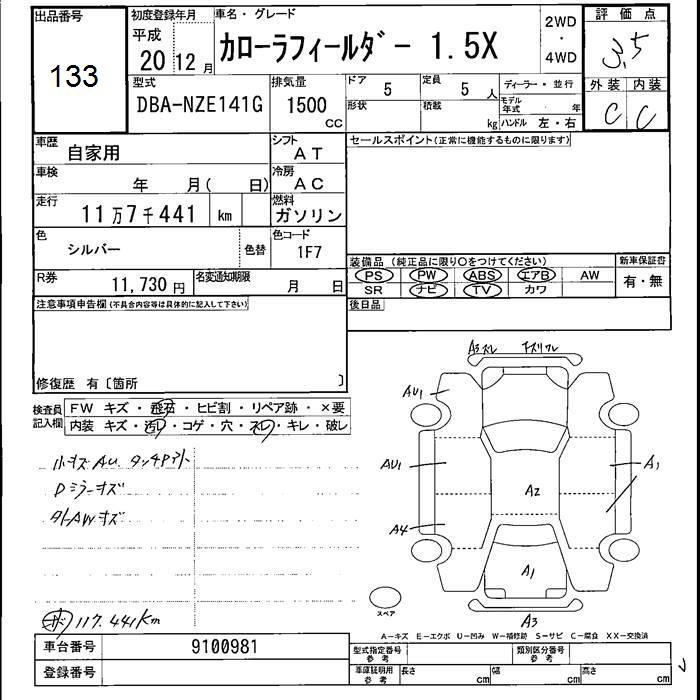 出品番号 初度登録年月 車名・グレード 2WD ・ 4WD 評価点
133 平成 20 12月 カローラフィールダー 1.5X 3.5
型式 排気量 ドア 定員 ディーラー・並行 外装 内装
DBA-NZE141G 1500 CC 5 5人 モデル年式 年 C C
形状 積載 kg ハンドル 左・右
車歴 自家用 シフト AT セールスポイント(正常に機能するものに限ります)
車検 年 月( 日) 冷房 AC
走行 11万7千441 km 燃料 ガソリン
色 シルバー 色替 色コード 1F7
装備品 (純正品に限り○をつけてください) 新車保証書
PS PW ABS エアB AW 有・無
SR ナビ TV カワ
R券 11,730円 名変通知期限 月 日
注意事項申告欄(不具合内容等は具体的に記入して下さい) 後日品
修復歴 有〔箇所 〕
検査員記入欄 FW キズ・飛石・ヒビ割・リペア跡・×要
内装 キズ・汚レ・コゲ・穴・スレ・キレ・破レ
小キズAU.タッチアト
Dミラーキズ
外AWキズ
117.441km
A3スレ
AU1
AU1
A4
A2
A1
A1
A3
スペア
A-キズ E-エクボ U-凹み W-補修跡 S-サビ C-腐食 XX-交換済
車台番号 9100981 型式指定番号参考 類別区分番号参考
登録番号 車庫証明用参考 長さ cm 幅 cm 高さ cm